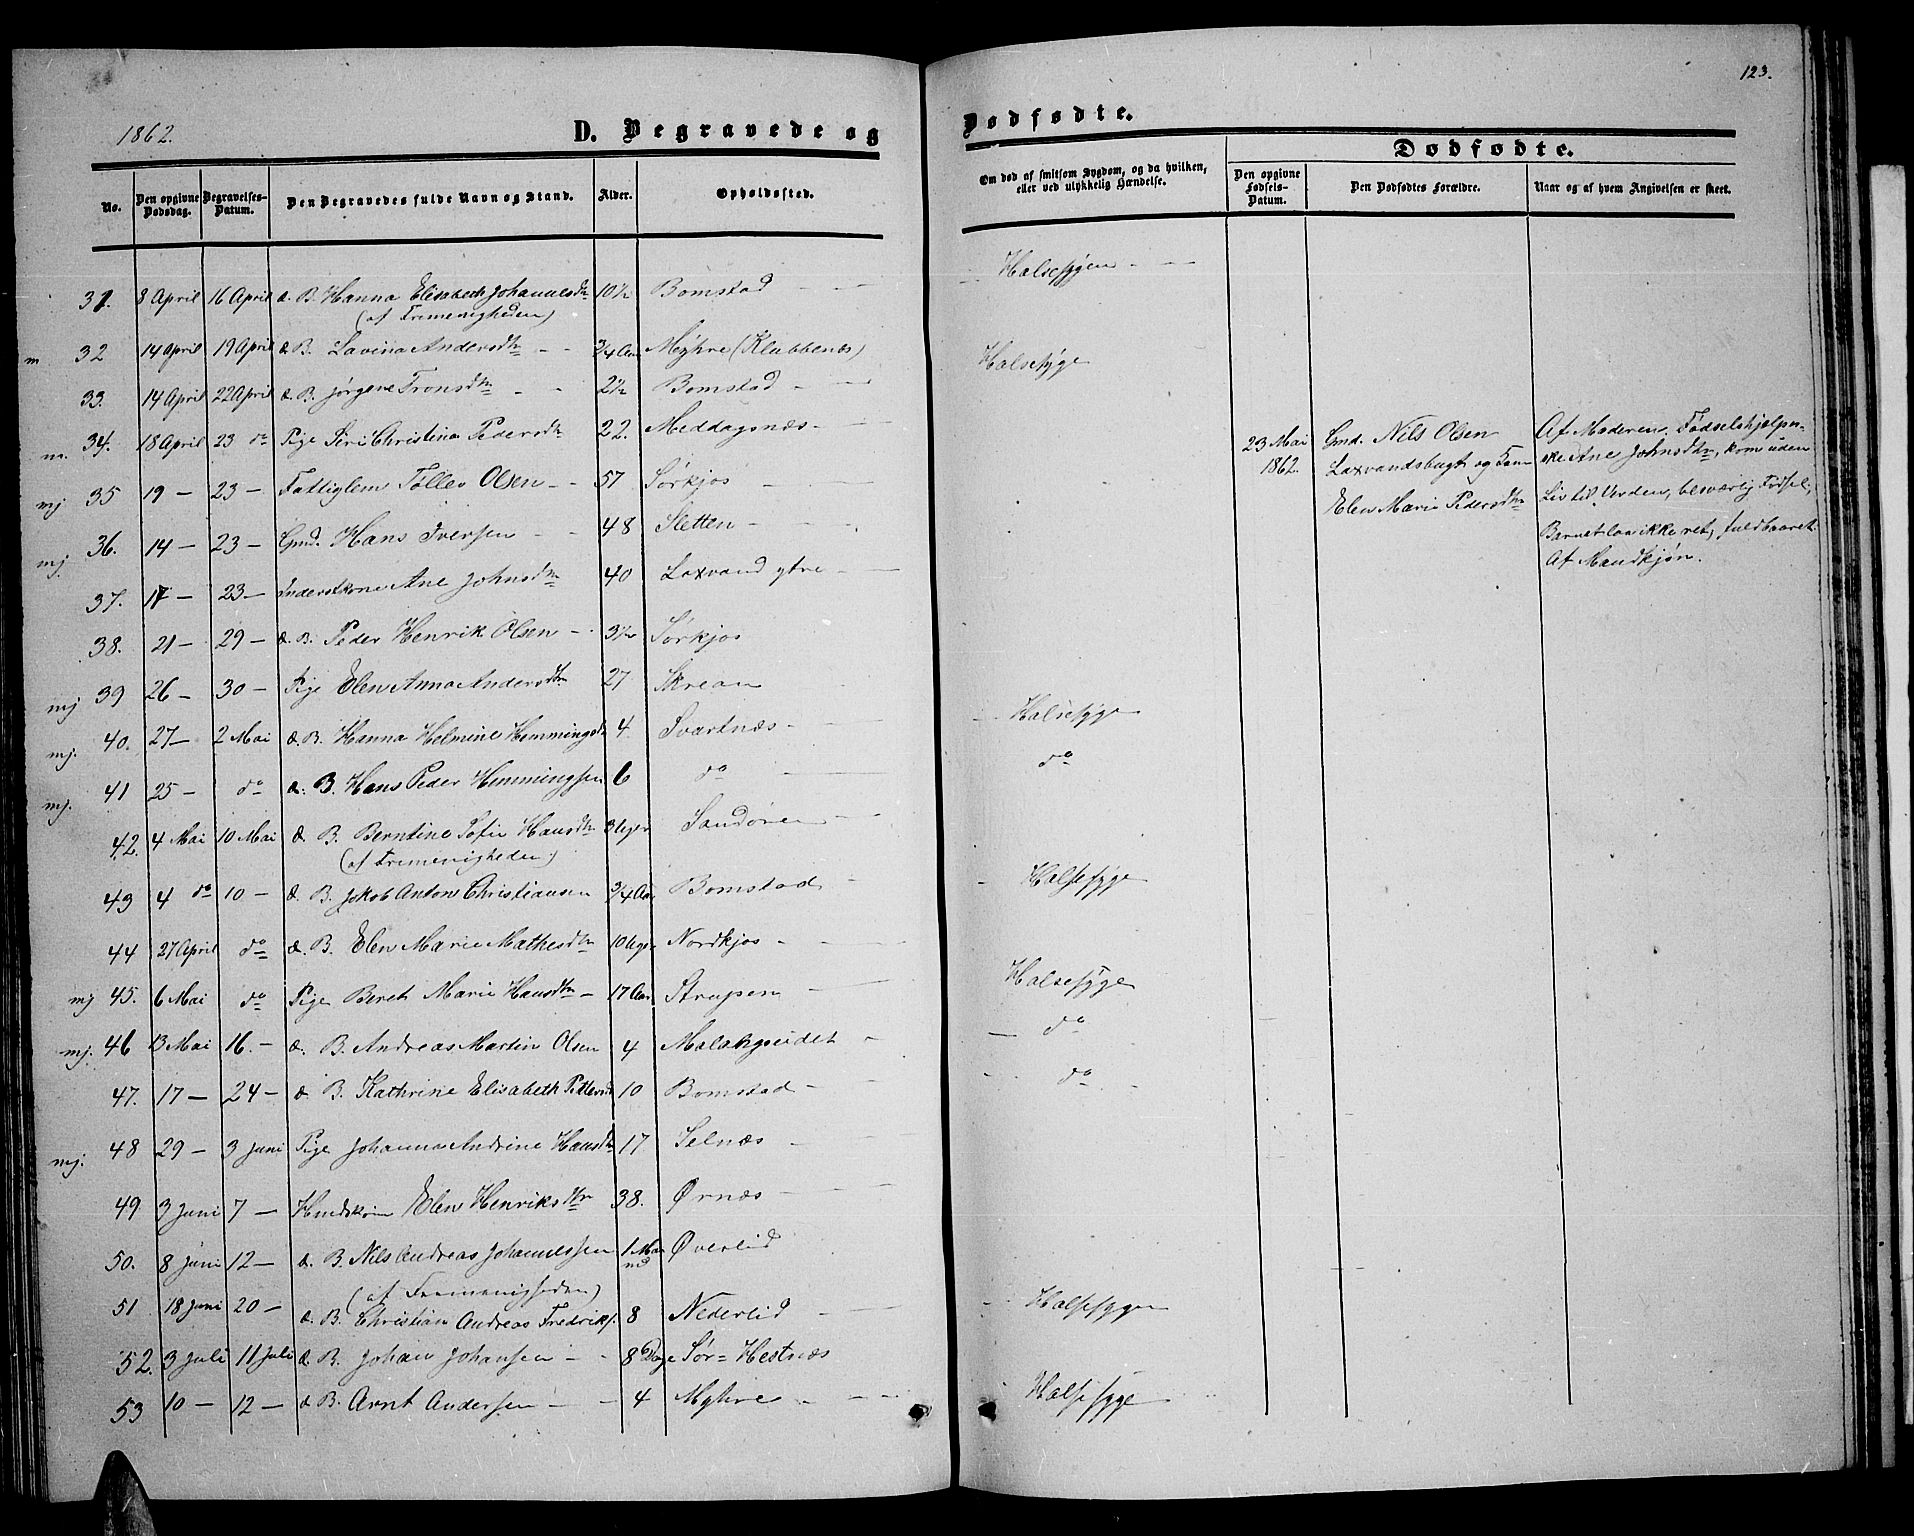 1862.
D. Begravede og
No.
Den opgivne Dødsdag.
Begravelses-Datum.
Den Begravedes fulde Navn og Stand.
Alder.
Opholdssted.
31. 8 April 16 April d. B. Hanna Elisabeth Johannesdtr 10½ Bomstad
(af Fremenigheden)
m 32 14 April 19 April d. B. Lavina Andersdtr 3/4 Aar Myhre (Klubbenæs)
33. 14 April 22 April d. B. Jørgene Tronsdtr 2½ Bomstad
m. 34. 18 April 23 do Pige Siri Christina Pedersdtr 22. Meddagsnæs
mj 35 19 — 23 — Fattiglem Tollev Olsen 57 Sørkjos
mj 36. 14 — 23 — Gmd. Hans Iversen 48 Sletten
37. 17 — 23 — Inderstkone Ane Johnsdtr 40 Laxvand ytre
38. 21 — 29 — d. B. Peder Henrik Olsen 3½ Sørkjos
mj 39 26 — 30 — Pige Elen Anna Andersdtr 27 Skrean
mj. 40. 27 — 2 Mai d. B. Hanna Helmine Hemmingsdtr 4. Svartnæs
mj. 41 25 — do d. B. Hans Peder Hemmingsen 6 do
42. 4 Mai 10 Mai d. B. Berntine Sofie Hansdtr 3 Uger Sandøren
(af Fremenigheden)
43 4 do 10 — d. B. Jakob Anton Christiansen 3/4 Aar Bomstad
44 27 April do d. B. Elen Marie Mathesdtr 10 Uger Nordkjos
mj 45. 6 Mai do Pige Beret Marie Hansdtr 17 Aar Strupen
mj. 46 13 Mai 16. — d. B. Andreas Martin Olsen 4 Malangseidet
47. 17 — 24 — d. B. Kathrine Elisabeth Pettersd 10 Bomstad
mj. 48 29 — 3 Juni Pige Johanna Andrine Hansdtr 17 Selnæs
49 3 Juni 7 — Huuskone Elen Henriksdtr 38. Ørnæs
50. 8 Juni 12 — d. B. Nils Andreas Johannessen 1 Maaned Øverlid
(af Fremenigheden)
51 18 Juni 20 — d. B. Christian Andreas Fredriks. 8 Nederlid
52. 3 Juli 11 Juli d. B. Johan Johansen 8 Dage Sør=Hestnæs
53 10 — 12 — d. B. Arnt Andersen 4 Myhre
123.
Dødfødte.
Om død af smitsom Sygdom, og da hvilken, eller ved ulykkelig Hændelse.
Dødfødte.
Den opgivne Fødsels-Datum.
Den Dødfødtes Forældre.
Naar og af hvem Angivelsen er skeet.
Halsesygen
Halsesyge
23 Mai 1862.
Gmd. Nils Olsen
Laxvandsbugt og Kone
Elen Marie Pedersdtr
Af Moderen. Fødselshjelper-
ske Ane Johnsdtr, kom uden
Liv til Verden, besværlig Fødsel,
Barnet laa ikke ret, fuldbaaret
Af Mandkjøn.
Halsesyge
do
Halsesyge
Halsesyge
do
do
Halsesygen
Halsesyge